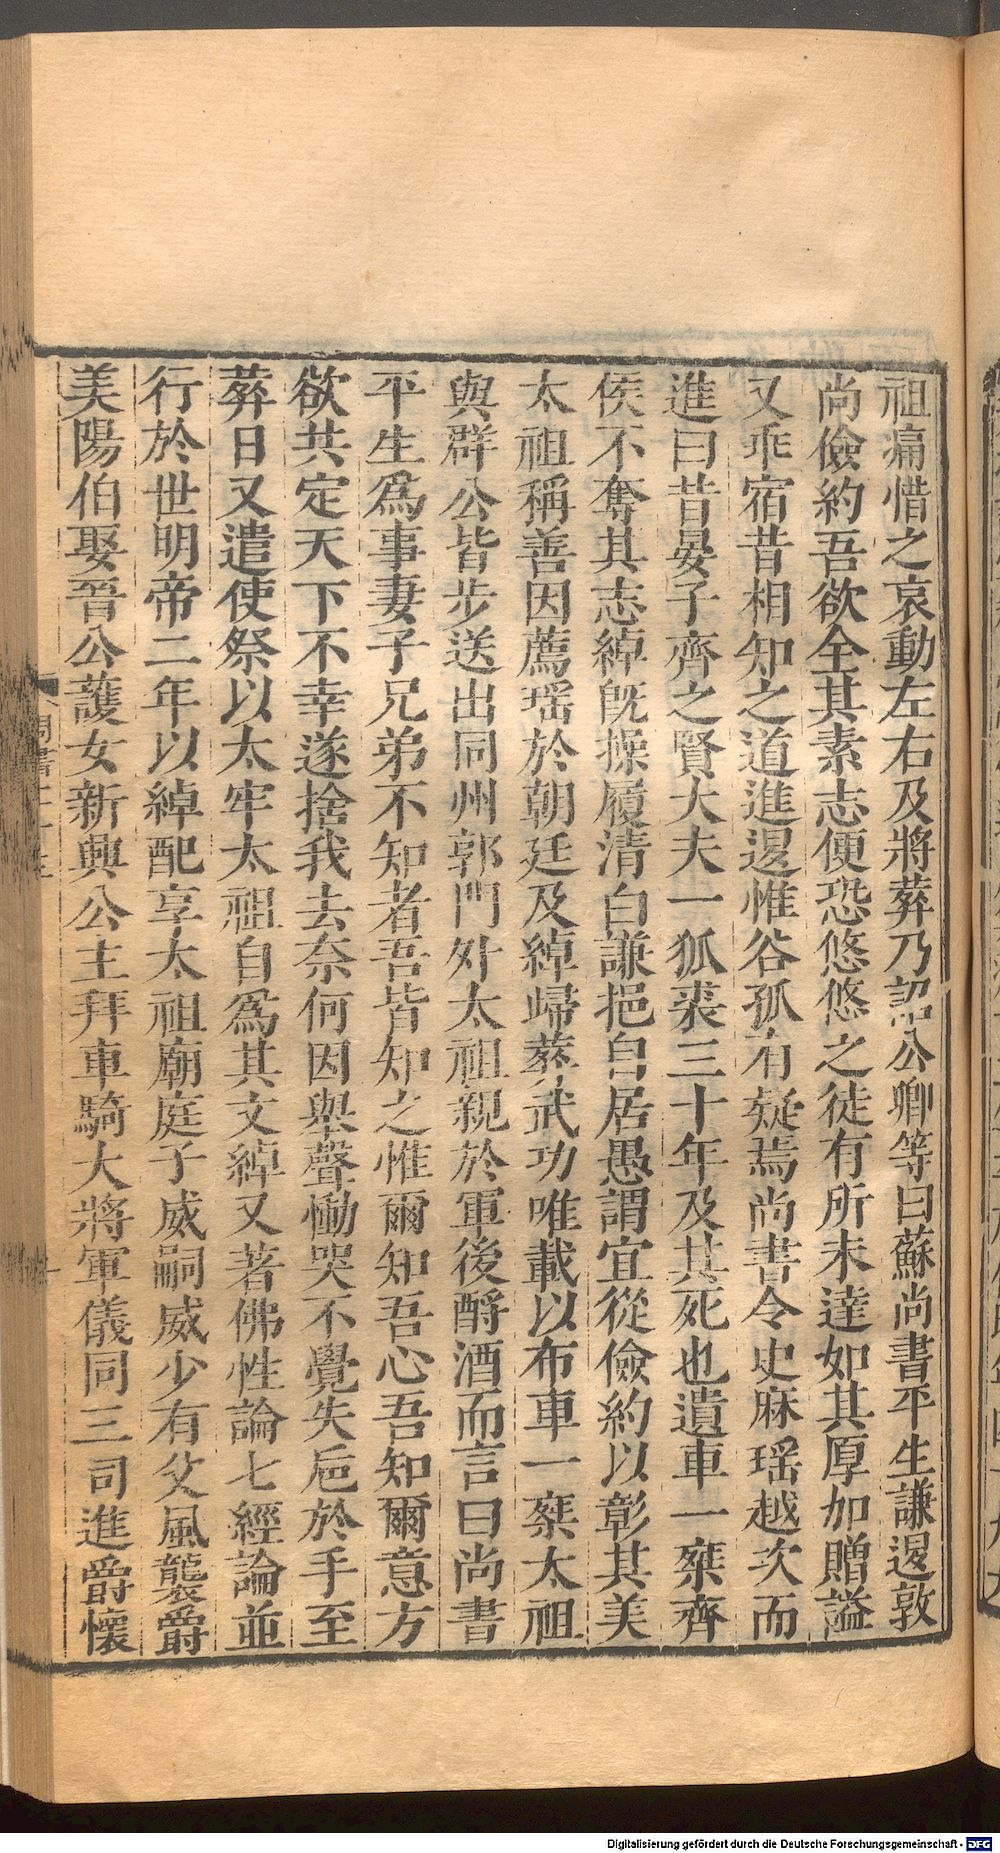 祖痛惜之哀動左右及將葬乃詔公卿等曰蘇尚書平生謙退敦
尚儉約吾欲全其素志便恐悠悠之徒有所未達如其厚加贈諡
又乖宿昔相知之道進退惟谷孤有疑焉尚書令史麻瑶越次而
進曰昔晏子齊之賢大夫一狐裘三十年及其死也遺車一椉齊
侯不奪其志綽旣操履清白謙挹自居愚謂宜從儉約以彰其美
太祖稱善因薦瑶於朝廷及綽歸葬武功唯載以布車一椉太祖
與群公皆步送出同州郭門外太祖親於車後酹酒而言曰尚書
平生爲事妻子兄弟不知者吾皆知之惟爾知吾心吾知爾意方
欲共定天下不幸遂捨我去奈何因舉聲慟哭不覺失巵於手至
葬日又遣使祭以太牢太祖自爲其文綽又著佛性論七經論並
行於世明帝二年以綽配享太祖廟庭子威嗣威少有父風襲爵
美陽伯娶晉公護女新興公主拜車騎大將軍儀同三司進爵懷
周書二十三
Digitalisierung gefördert durch die Deutsche Forschungsgemeinschaft - DFG